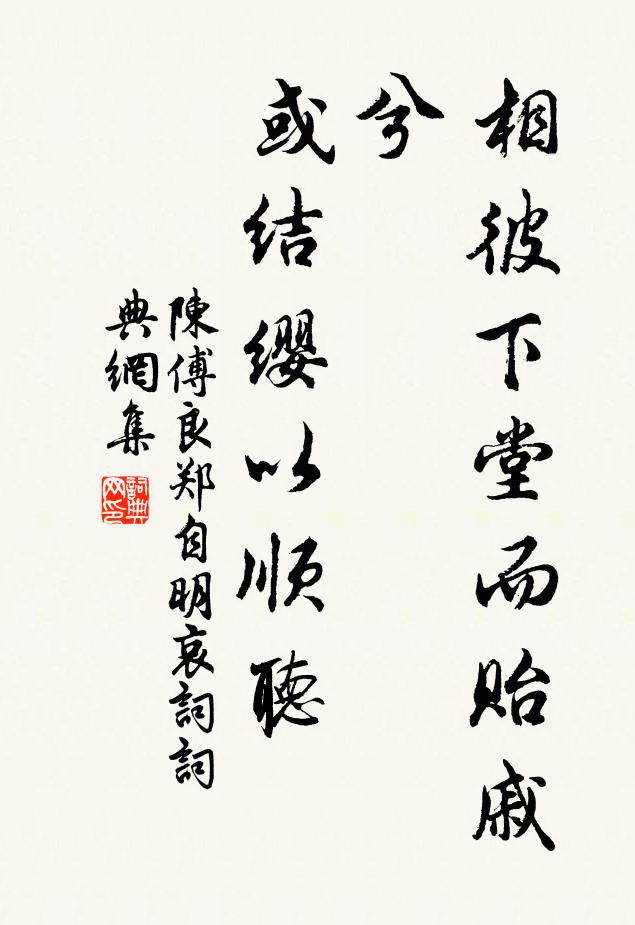 相彼下堂而贻戚
兮
或结缨以顺聴
陳傅良郑自明哀詞詞
典網集
詞典
网印